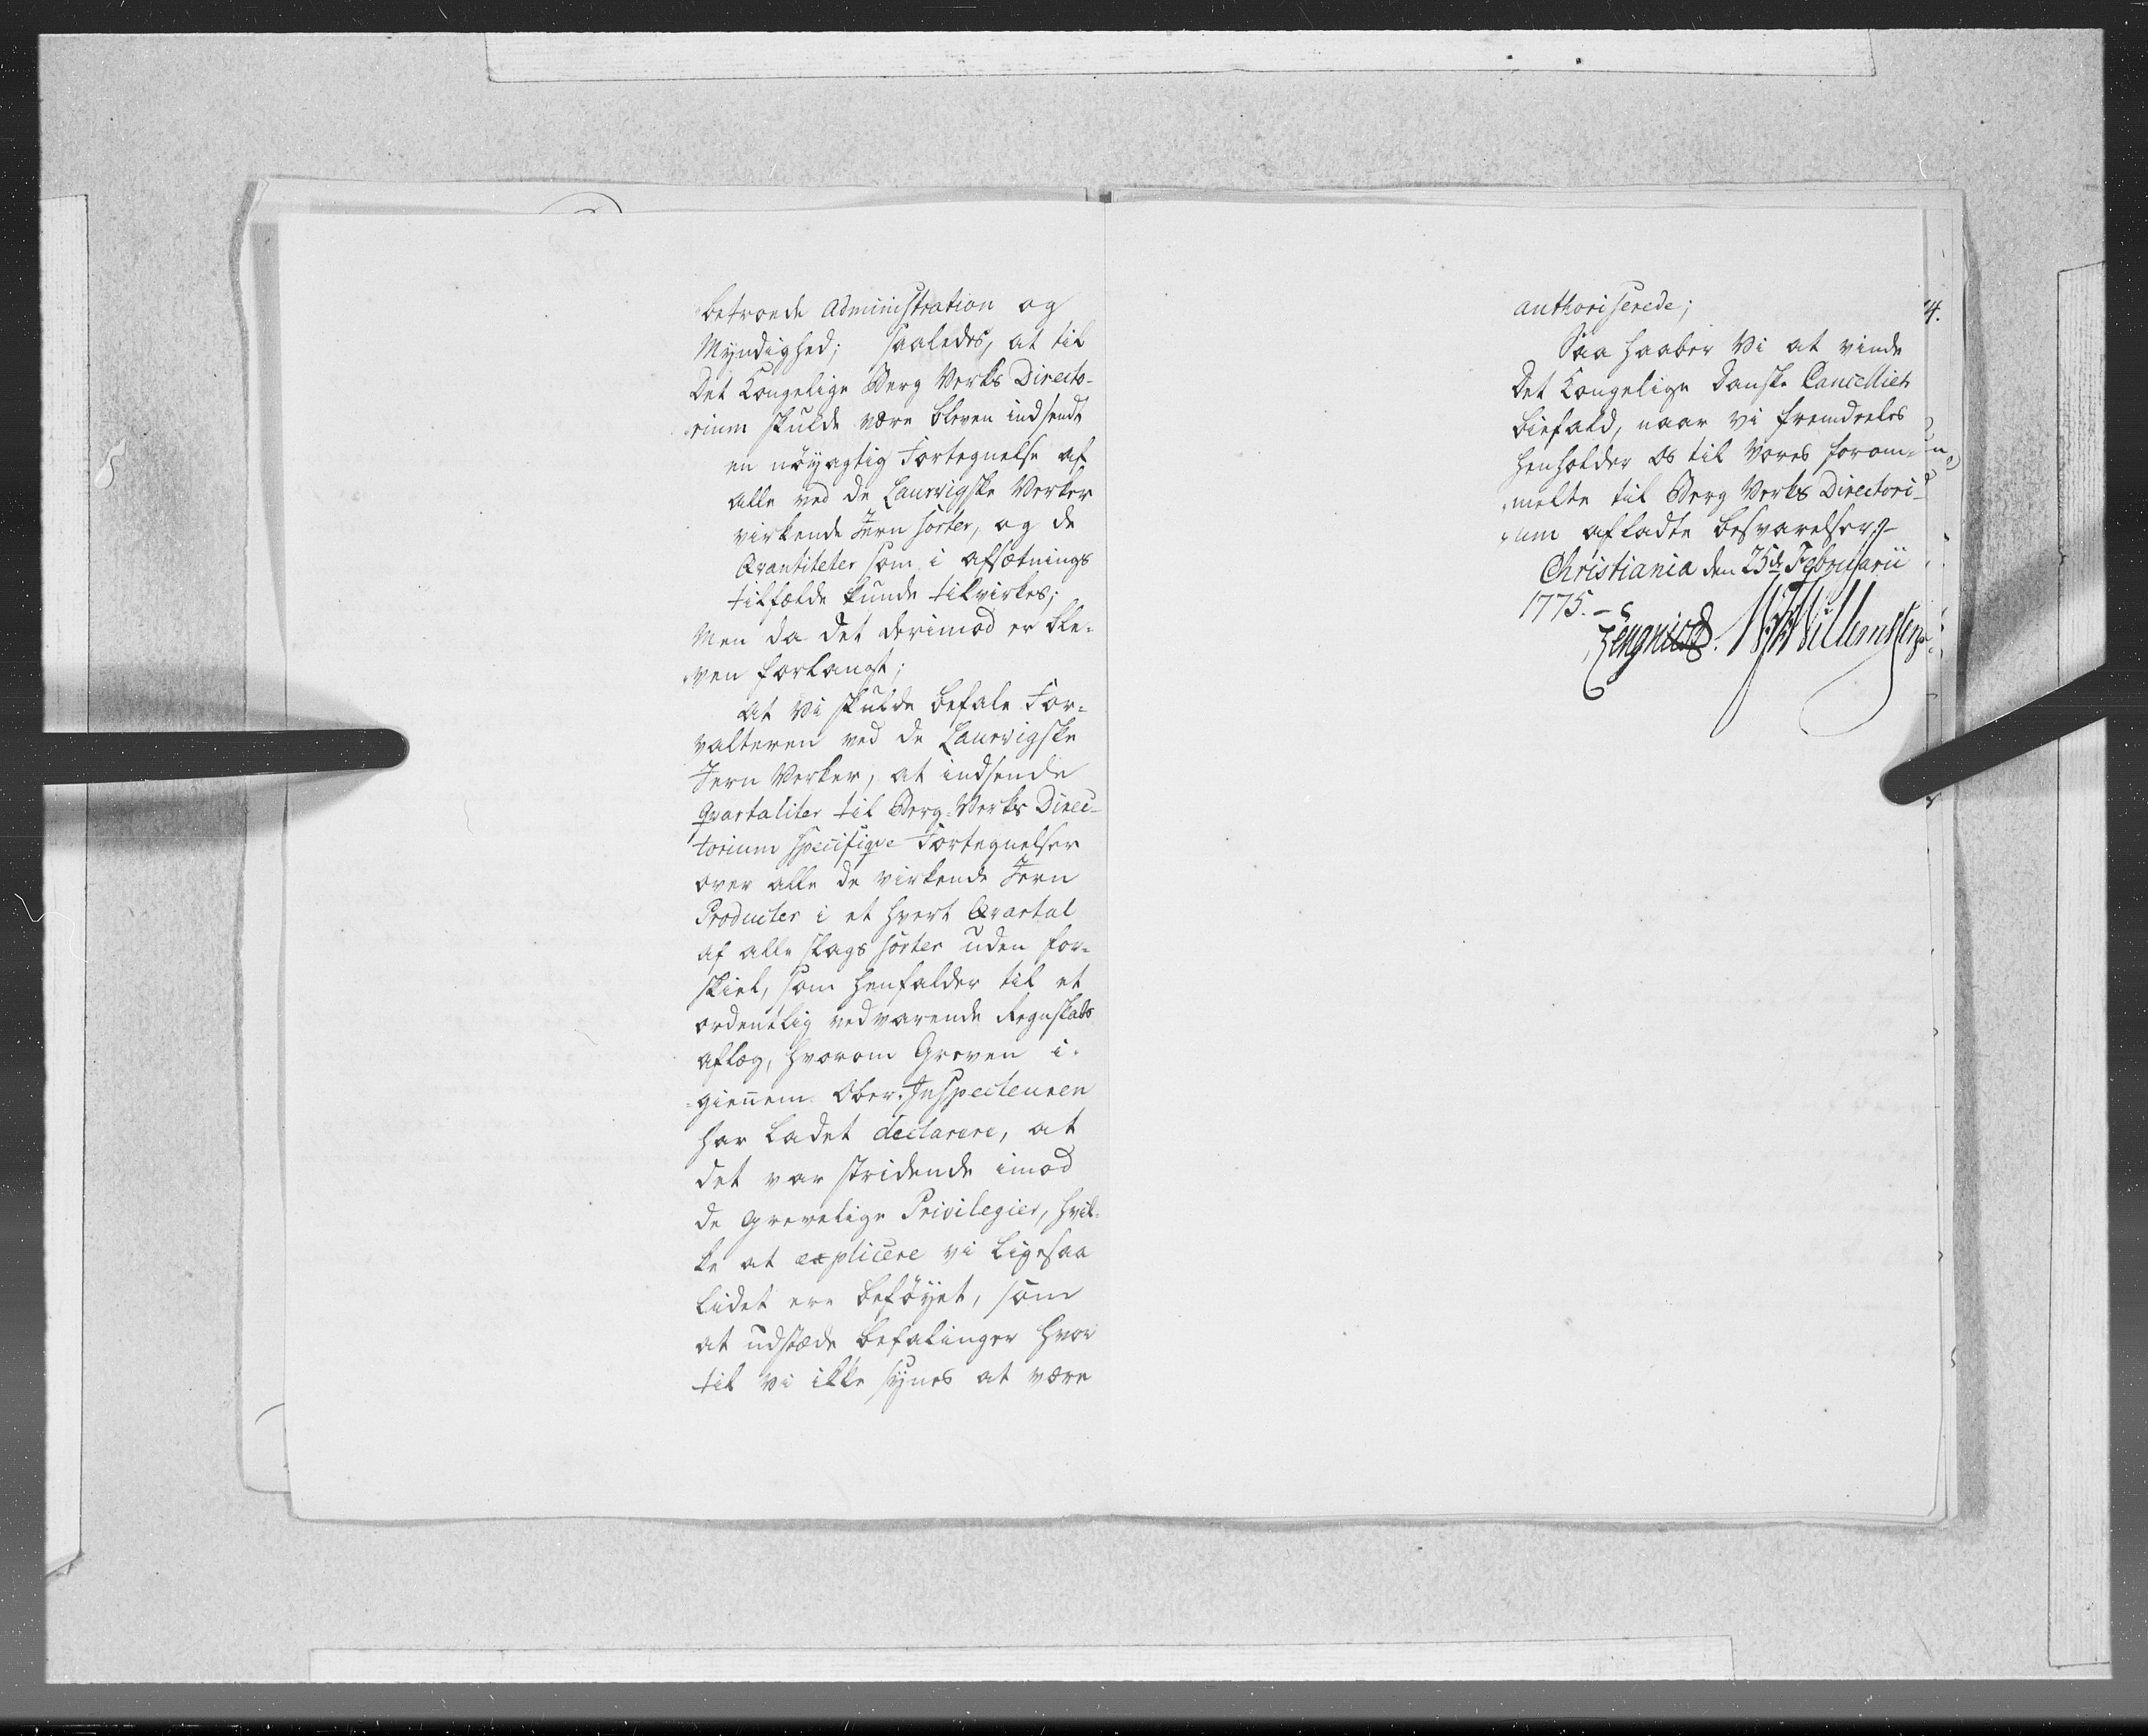 betroede Administration og
Myndighed; saaledes, at til
Det Kongelige Berg Verks Directo-
rium skulde være bleven indsendt
en nöyagtig Fortegnelse af
alle ved de Laurvigske Verker
virkende Jern sorter, og de
Qvantiteter som i afsætnings
tilfælde kunde tilvirkes;
Men da det derimod er ble-
ven forlangt;
at Vi skulde befale For-
valteren ved de Laurvigske
Jern Verker, at indsende
Qvartaliter til Berg-Verks Direc-
torium specifiqve Fortegnelser
over alle de virkende Jern
Producter i et hvert Qvartal
af alle slags sorter uden for-
skiel, som henfalder til et
ordentlig vedvarende Regnskabs
aflæg, hvorom Greven i-
giennem Ober-Inspecteuren
har ladet declarere, at
det var stridende imod
de grevelige Privilegier, hvil-
ke at explicere vi ligesaa
lidet ere beföyet, som
at udstæde befalinger hvor
til Vi ikke synes at være
authoriserede;
Saa haaber Vi at vinde
Det Kongelige Danske Cancellies
biefald, naar vi fremdeeles
henholder os til vores foran-
melte til Berg Verks Directori-
um afladte besvarelser.
Christiania den 25de Februarii
1775.